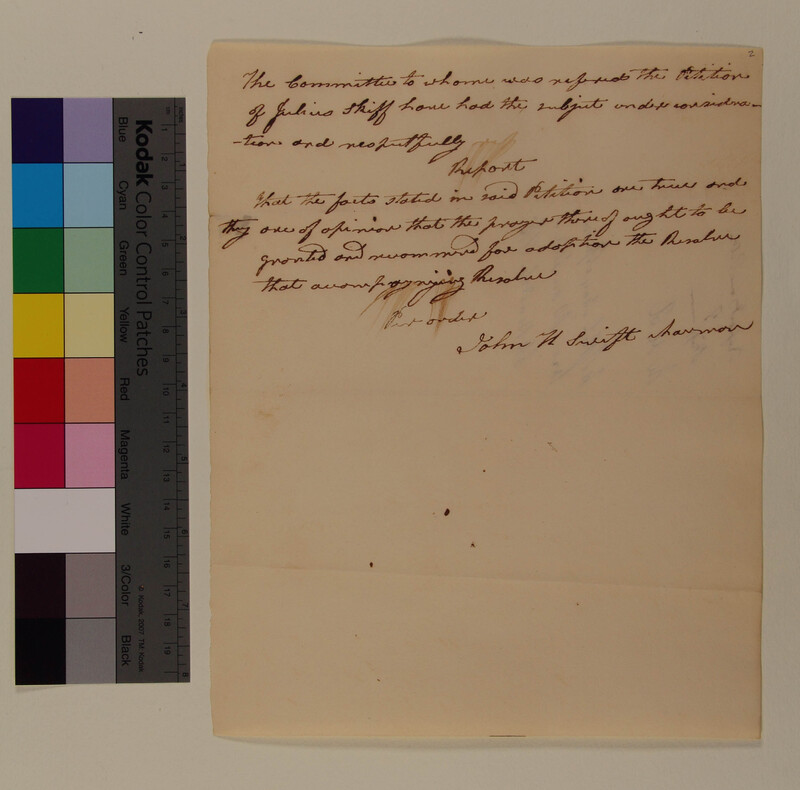 2
The Committee to whome was refered the Petition
of Julius Skiff have had the subject under considera-
-tion and respectfully
Report
that the facts stated in said Petition are true and
they are of opinion that the prayer thereof ought to be
granted and recommend for adoption the Resolve
that accompanying Resolve
Per order
John H Swift charman
Kodak Color Control Patches
Blue
Cyan
Green
Yellow
Red
Magenta
White
3/Color
Black
© Kodak, 2007 TM: Kodak
1 2 3 4 5 6 7 8 9 10 11 12 13 14 15 16 17 18 19